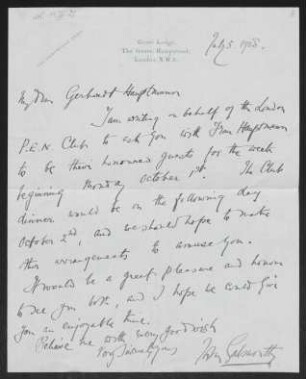 Grove Lodge,
The Grove, Hampstead,
London, N.W.3.
July 5 1928.
My dear Gerhardt Hauptmann
I am writing on behalf of the London
P.E.N. Club to ask you with Frau Hauptmann
to be their honoured guests for the week
beginning Monday October 1st. The Club
dinner would be on the following day
October 2nd, and we should hope to make
other arrangements to amuse you.
It would be a great pleasure and honour
to see you both, and I hope we could give
you an enjoyable time.
Believe me with every good wish
Very sincerely yours
John Galsworthy